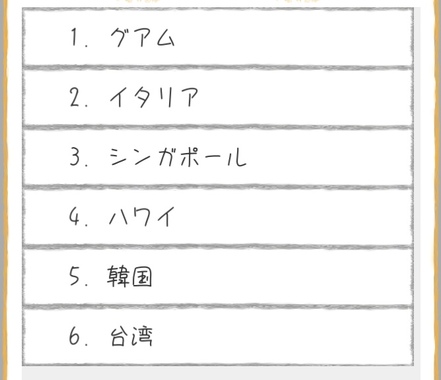 1. グアム
2. イタリア
3. シンガポール
4. ハワイ
5. 韓国
6. 台湾